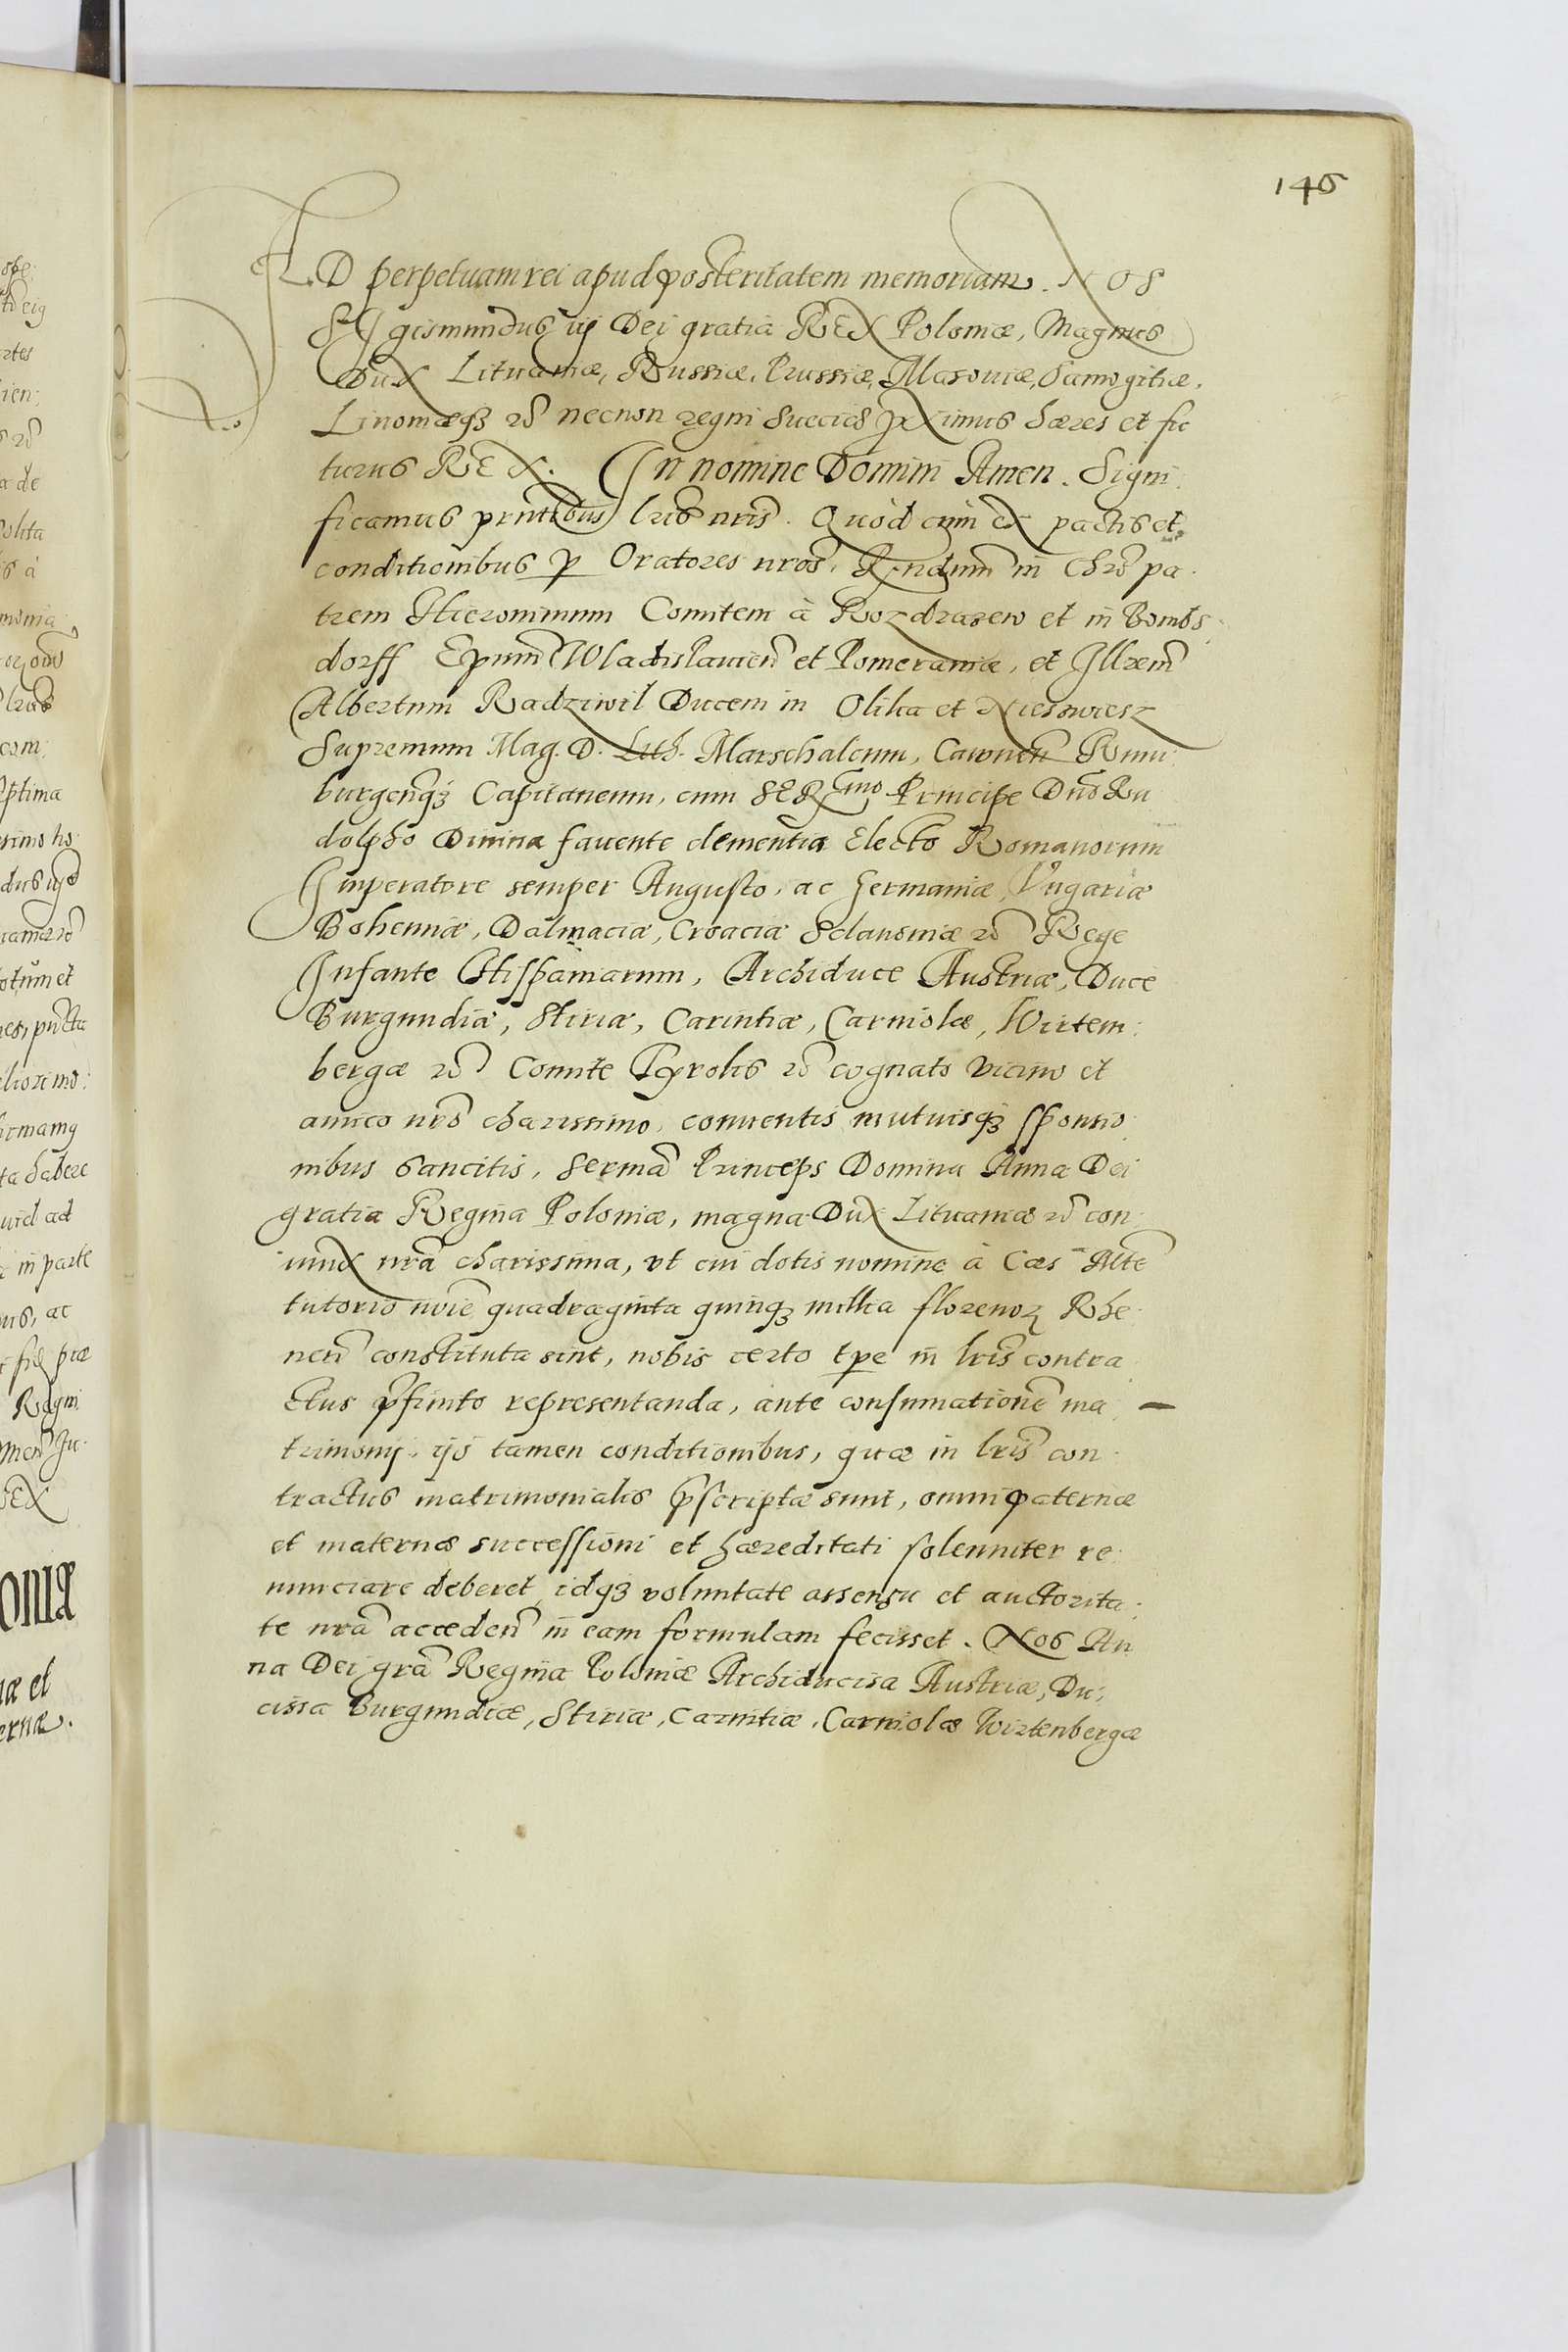 146
AD perpetuam rei apud posteritatem memoriam. NOS
SIgismundus iij Dei gratia REX Poloniæ, Magnus
Dux Lituaniæ, Russiæ, Prussiæ, Masouiæ, Samogitiæ,
Liuoniæqꝫ &c necnon regni Sueciæ proximus hæres et fu
turus REX. In nomine Domini Amen. Signi
ficamus pñtibus lr̃is nr̃is. Quòd cum ex pactis et
conditionibus ꝑ Oratores nr̃os, Rñdum in Chr̃o pa
trem Hieronimum Comitem à Rozdrazew et in Bombs
dorff Ep̃um Wladislauien̄ et Pomeraniæ, et Illrem̃
Albertum Radziwil Ducem in Olika et Nieswiesz
Supremum Mag. D. Lith. Marschalcum, Cawnen̄ Rum
burgen̄qꝫ Capitaneum, cum SERmo Principe Dn̄o Ru
dolpho Diuina fauente clementia Electo Romanorum
Imperatore semper Augusto, ac Germaniæ, Vngariæ
Bohemiæ, Dalmaciæ, Croaciæ Sclauoniæ &c Rege
Infante Hispaniarum, Archiduce Austriæ, Duce
Burgundiæ, Stiriæ, Carintiæ, Carniolæ, Wirtem:
bergæ &c Comite Tyrolis &c cognato vicino et
amico nr̃o charissimo, conuentis mutuisqꝫ sponsio
nibus sancitis, Serma Princeps Domina Anna Dei
gratia Regina Poloniæ, magna Dux Lituaniæ &c con
iunx nr̃a charissima, vt cui dotis nomine à Cæs Mte
tutorio nõie quadraginta quinqꝫ millia florenoꝝ Rhe
nen̄ constituta sint, nobis certo tꝑe in lr̃is contra
ctus p̃finito representanda, ante consumationẽ ma
trimonij, ijs tamen conditionibus, quæ in lr̃is con
tractus matrimonialis p̃scriptæ sunt, omni paternæ
et maternæ successioni et hæreditati solenniter re
nunciare deberet, idqꝫ voluntate assensu et auctorita
te nr̃a acceden̄ in eam formulam fecisset. Nos An
na Dei gr̃a Regina Poloniæ Archiducissa Austriæ, Du:
cissa Burgundiæ, Stiriæ, Carintiæ, Carniolæ Wirtenbergæ